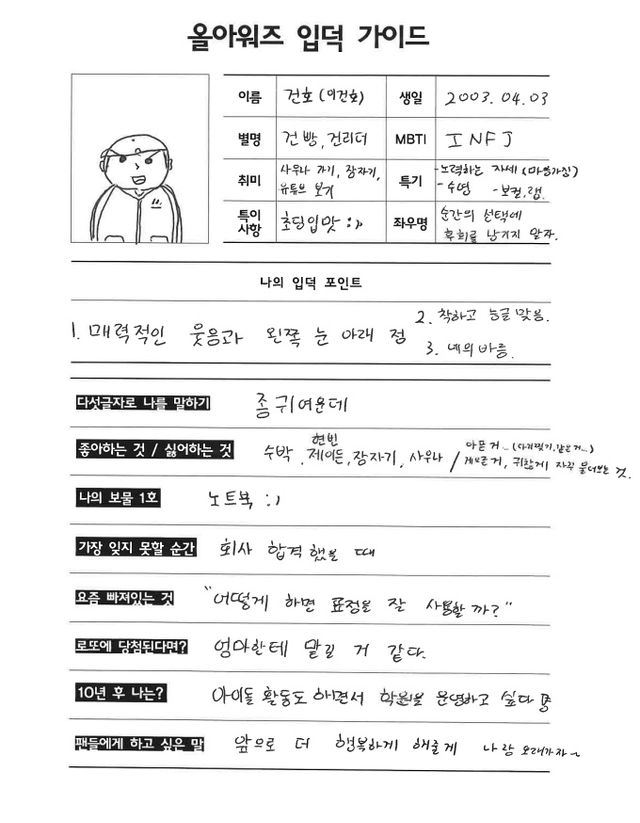 올아워즈 입덕 가이드
이름 건호 (이건호) 생일 2003. 04. 03
별명 건빵, 건리더 MBTI INFJ
취미 사우나 가기, 잠자기, 유튜브 보기
특기 -노력하는 자세 (마음가짐)
-수영 -보컬, 랩
특이사항 초딩입맛 :)
좌우명 순간의 선택에
후회를 남기지 말자.
나의 입덕 포인트
1. 매력적인 웃음과 왼쪽 눈 아래 점
2. 착하고 능글 맞음.
3. 예의바름.
다섯글자로 나를 말하기 좀귀여운데
좋아하는 것 / 싫어하는 것 수박, 현빈, 제이든, 잠자기, 사우나 / 아픈 거.. 게으른거, 귀찮게 자꾸 물어보는 것.
나의 보물 1호 노트북 :)
가장 잊지 못할 순간 회사 합격했을 때
요즘 빠져있는 것 "어떻게 하면 표정을 잘 사용할까?"
로또에 당첨된다면? 엄마한테 맡길 거 같다.
10년 후 나는? 아이돌 활동도 하면서 학원을 운영하고 싶다
팬들에게 하고 싶은 말 앞으로 더 행복하게 해줄게 나랑 오래가자~